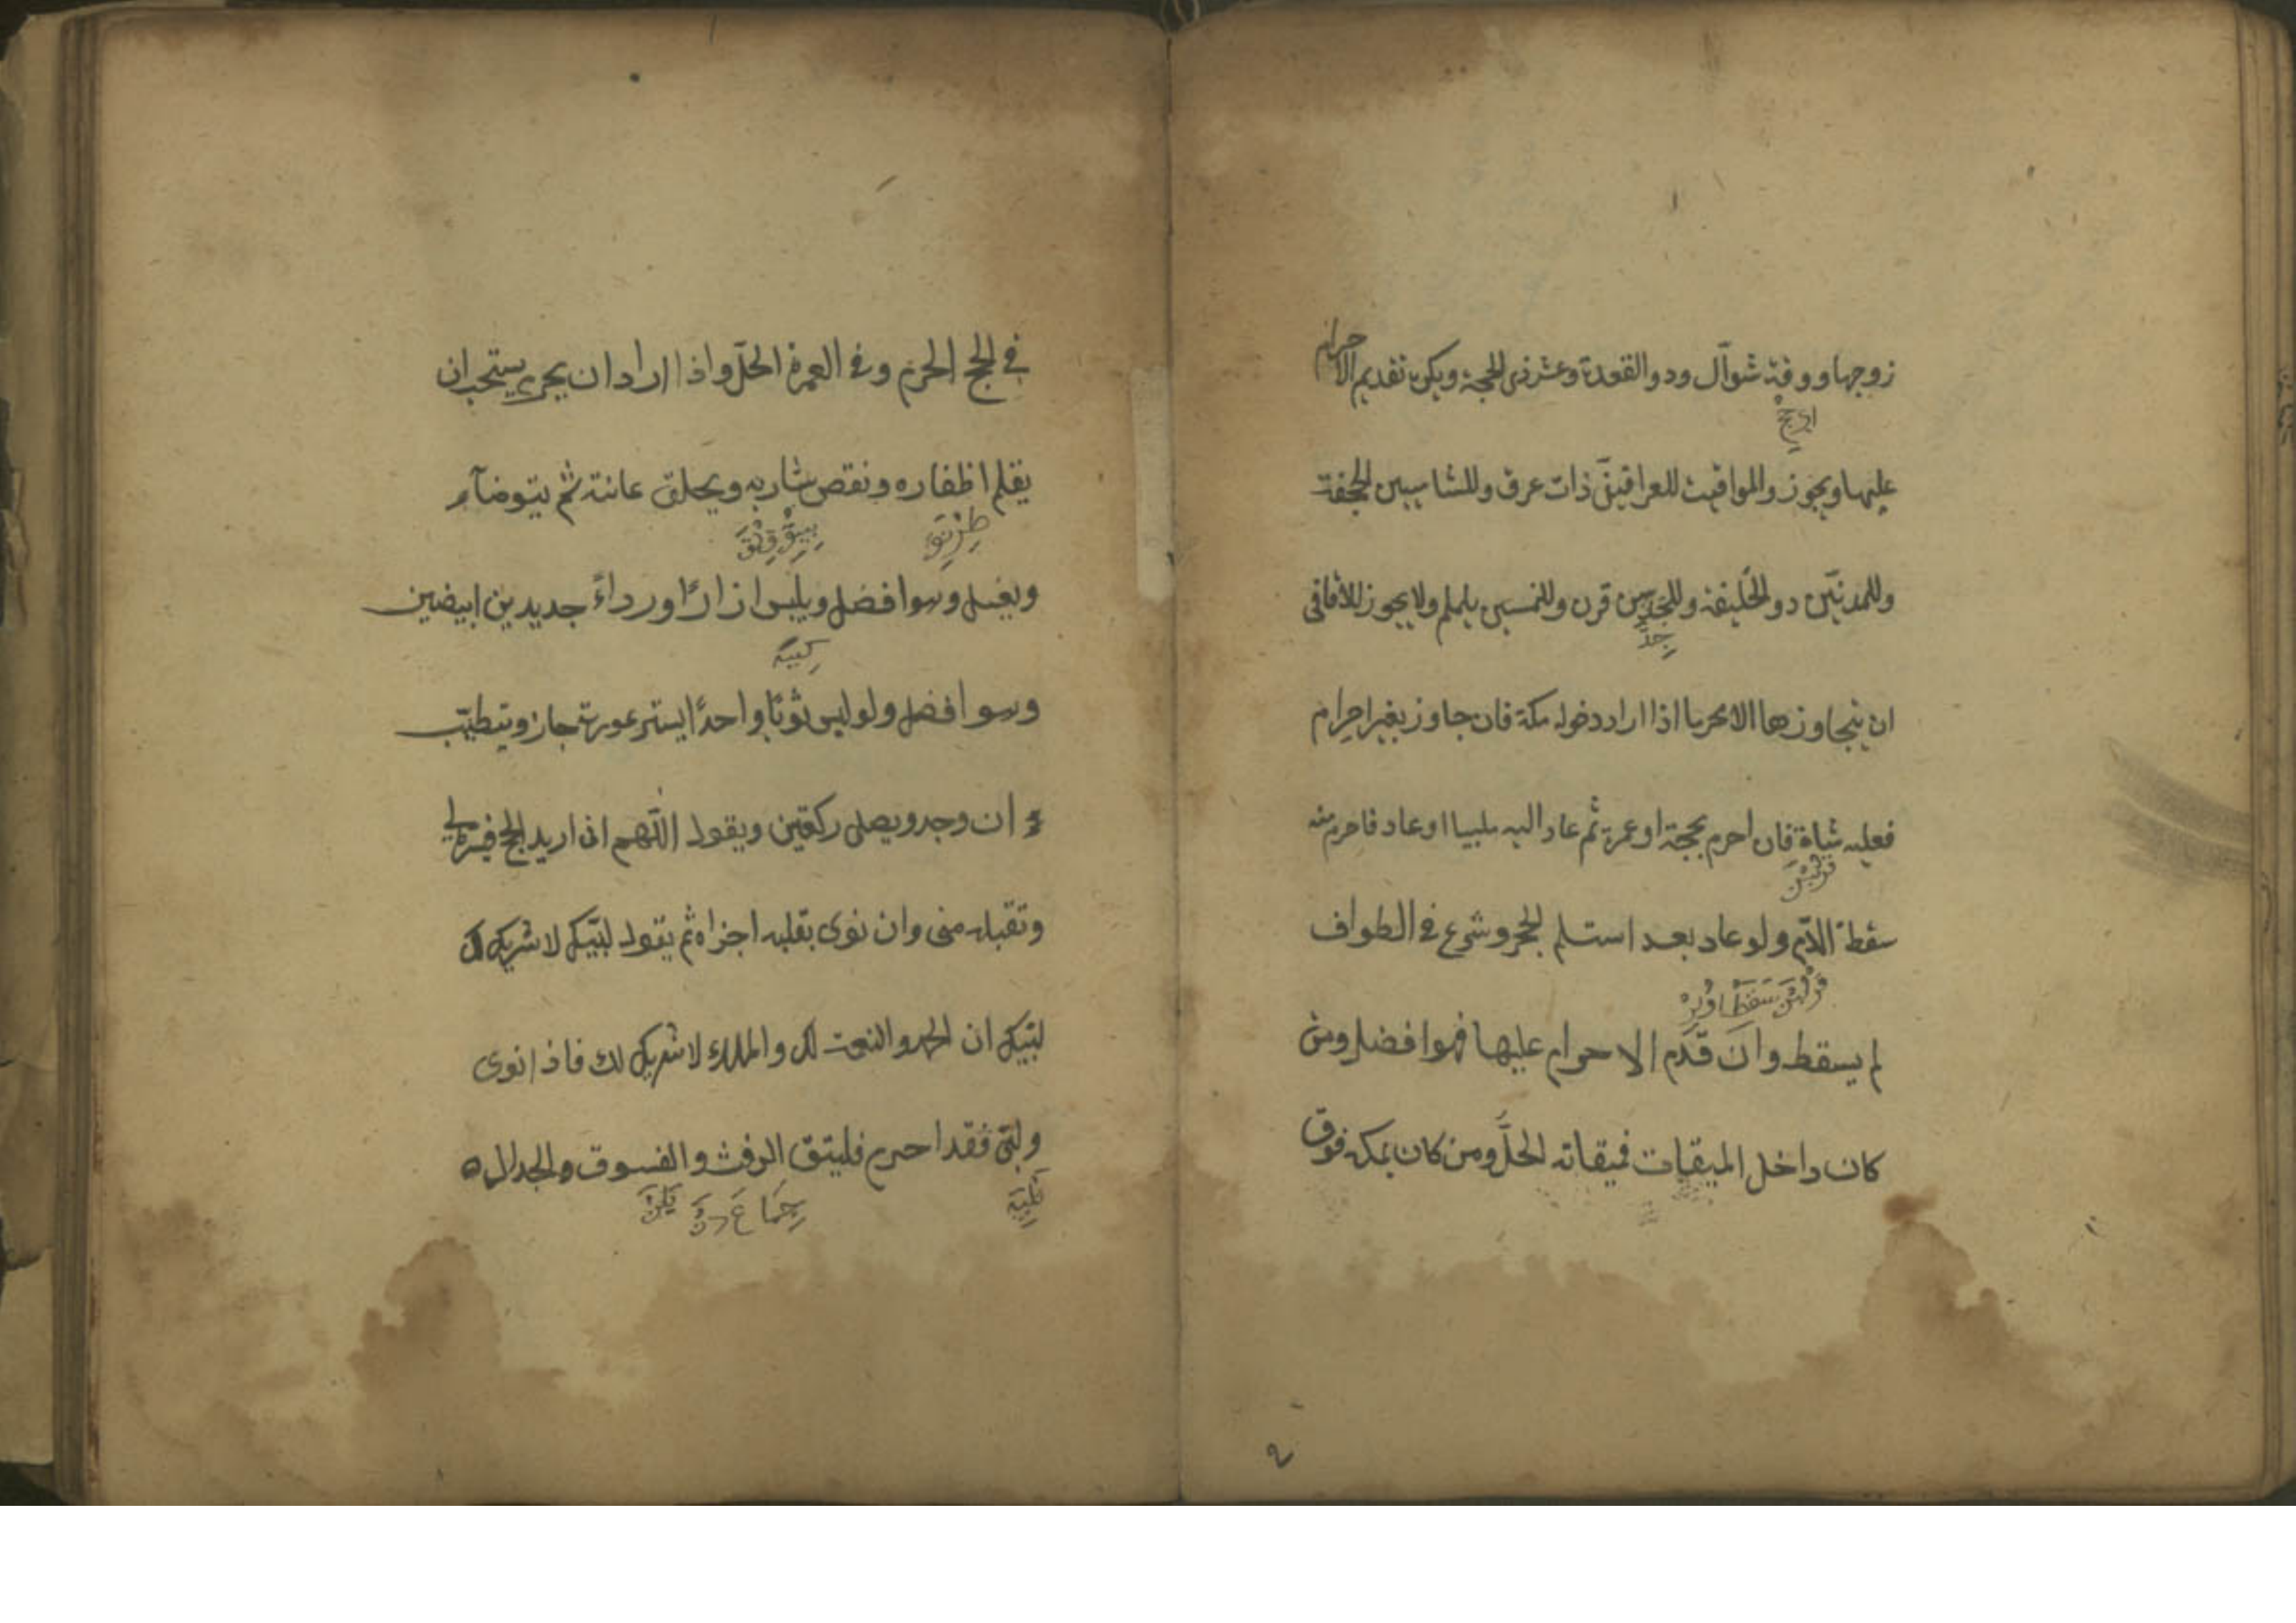 زوجها ووقته شوآل ودو القعدة وعشر ذى الحجة ويكره تقديم الاحرام
عليها ويجوز والمواقيت للعراقيين ذات عرق وللشاميين الجحفة
وللمدنيّين دو الحليفة وللنجديين قرن ولليمنيين يلملم ولا يجوز للأفاقى
ان يتجاوزها الا محرما اذا اراد دخول مكة فان جاوز بغير احرام
فعليه شاة فان احرم بحجة او عمرة ثم عاد اليه ملبيا او عاد فاحرم منه
سقط الدّم ولو عاد بعد استلم الحجر وشرع فى الطواف
لم يسقط وان قدّم الاحرام عليها فهو افضل ومن
كان داخل الميقات فميقاته الحلّ ومن كان بمكة فوقت
فى الحج الحرم وفى العمرة الحلّ واذا اراد ان يحرم يستحب ان
يقلم اظفاره ونقص شاربه ويحلق عانته ثم يتوضآء
ويغسل وهو افضل ويلبس ازارًا ورداءً جديدين ابيضين
وهو افضل ولو لبس ثوبًا واحدًا يستر عورته جاز ويتطيّب
ان وجد ويصلى ركعتين ويقول اللّهم انى اريد الحج فيسره لى
وتقبله منى وان نوى بقلبه اجزاه ثم يقول لبّيك لا شريك لك
لبّيك ان الحمد والنعمت لك والملك لا شريك لك فاذا نوى
ولبّى فقد احرم فليتق الرفث والفسوق والجدال ه
تلبيه جماع دن يلن